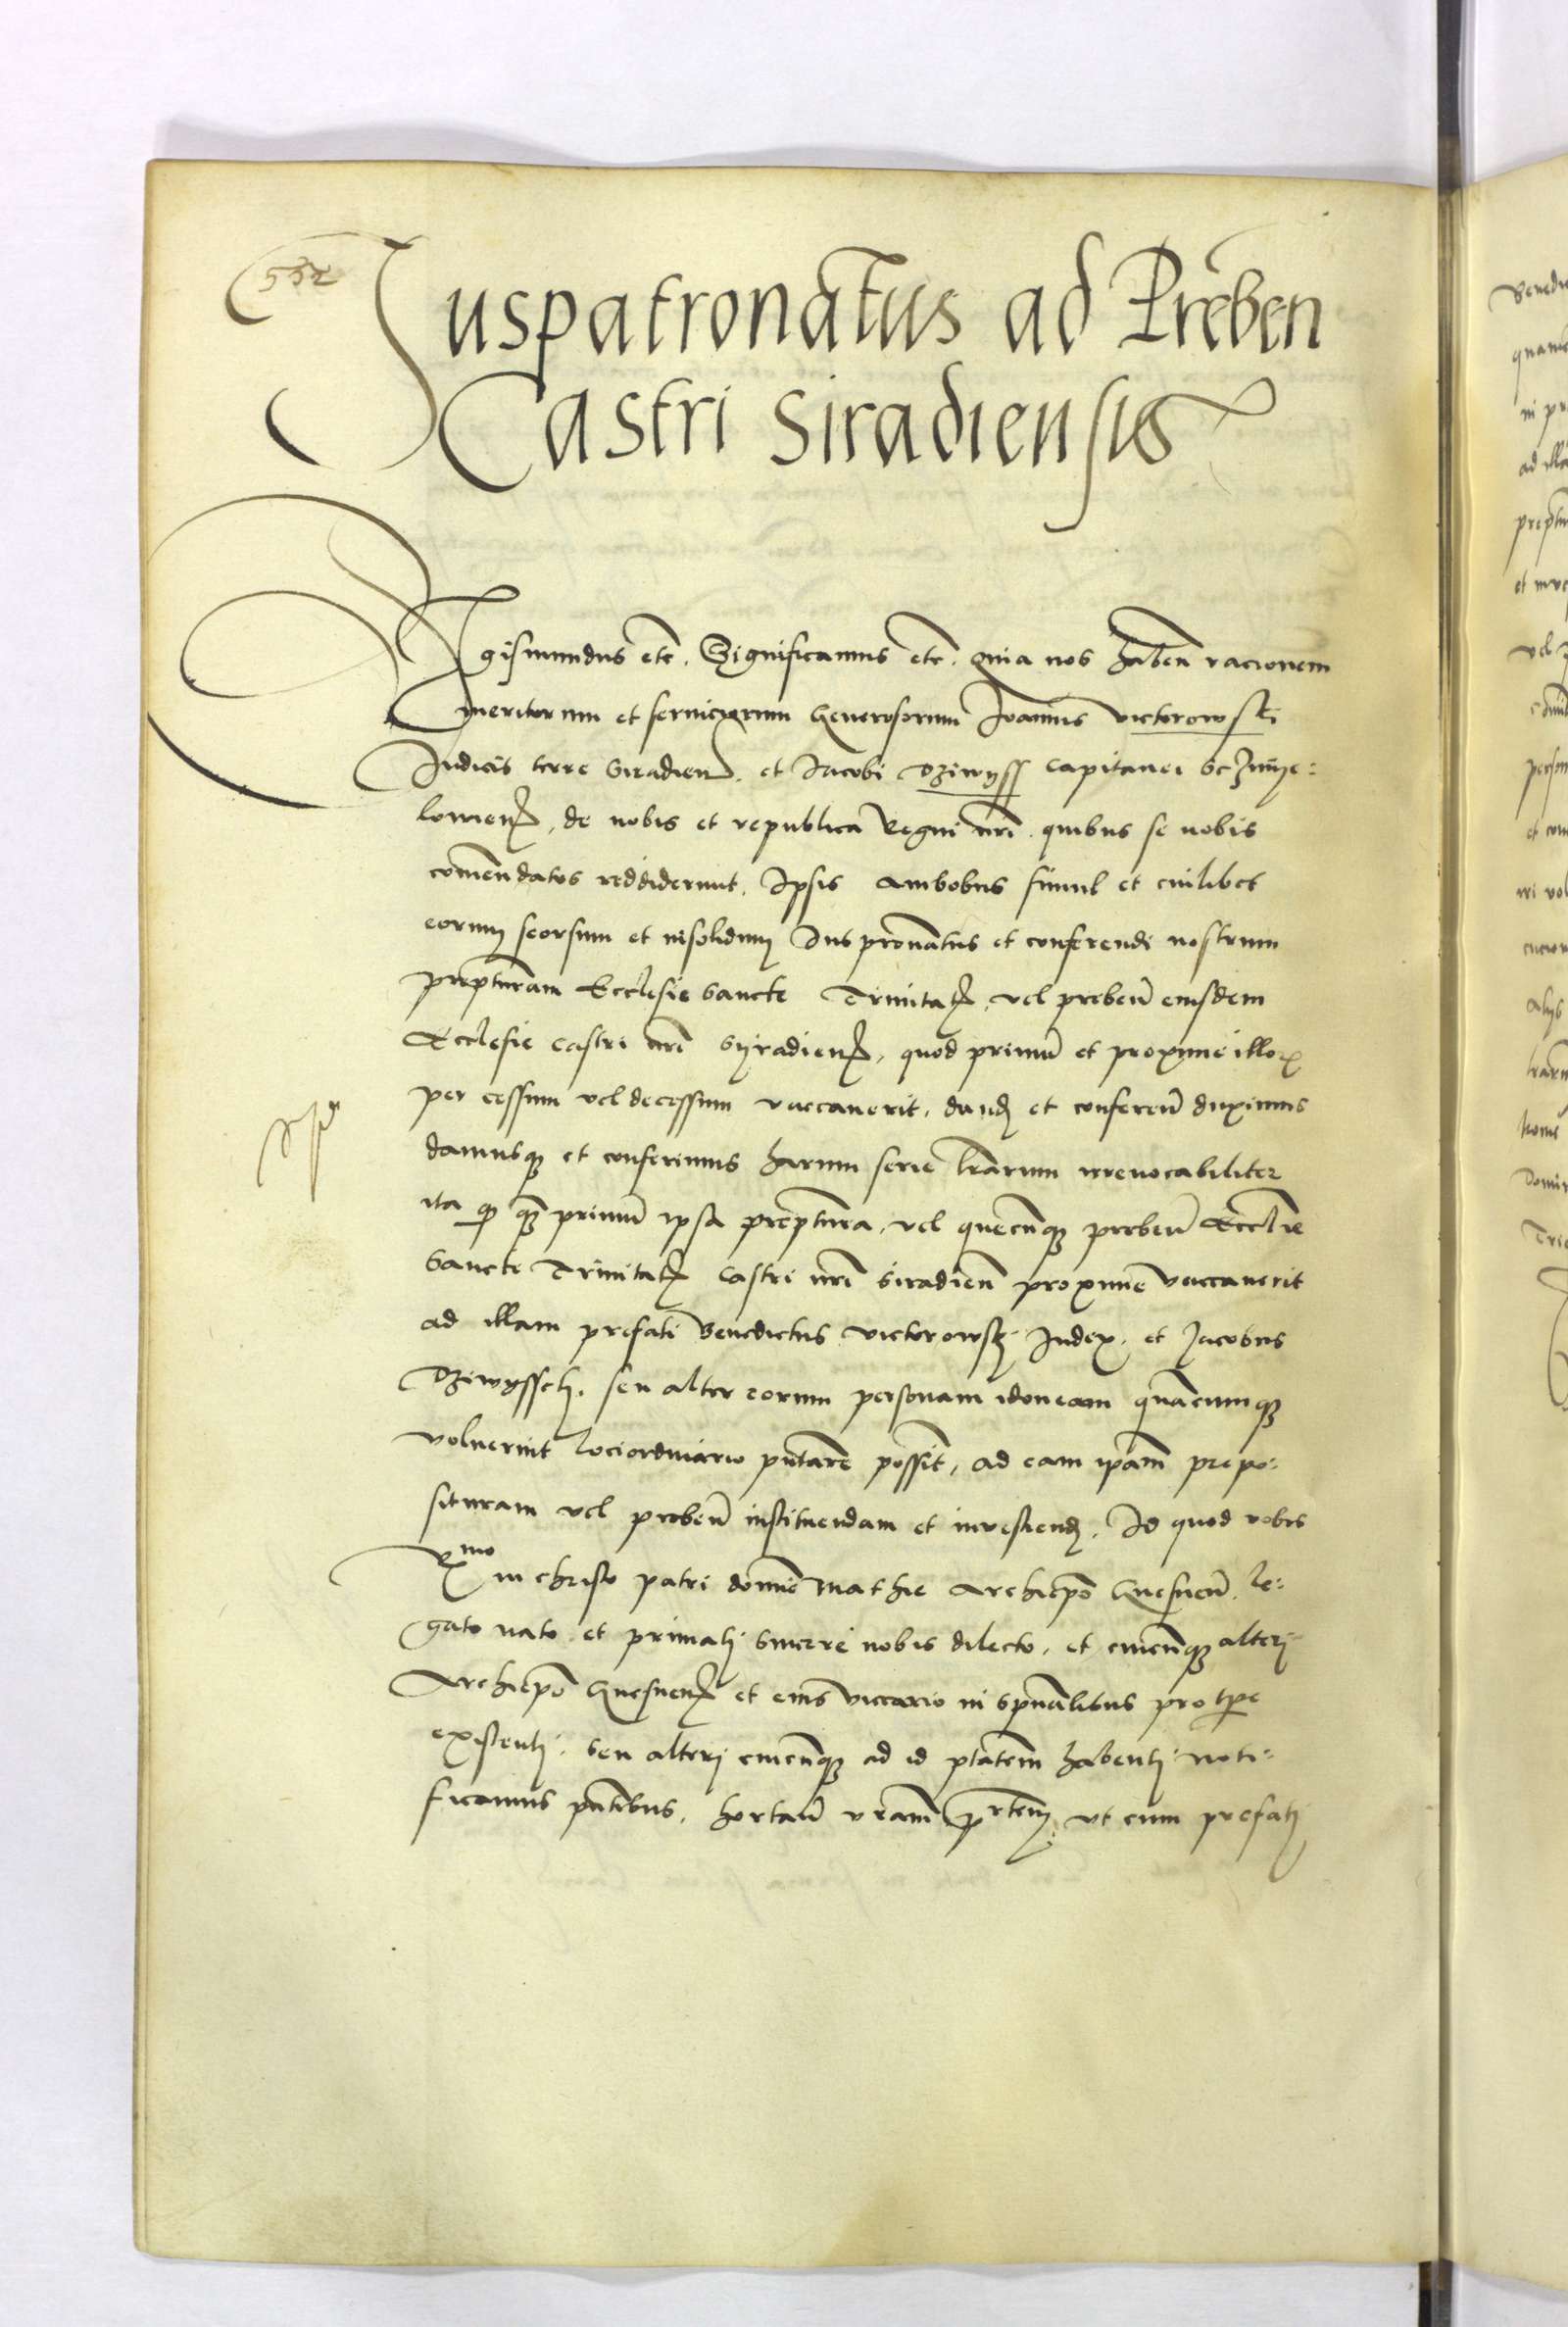 532
Juspatronatus ad Preben
Castri Siradiensis
Sigismundus etc. Significamus etc. quia nos haben racionem
meritorum et serviciorum Generosorum Joannis victorowski
Judicis terre Siradien. et Jacobi Dziwyss Capitanei
lowien, de nobis et republica Regni nri. quibus se nobis
comendatos reddiderunt. Ipsis ambobus simul et cuilibet
eorum seorsum et insolidum Jus pronatus et conferendi nostrum
prepturam Ecclesie Sancte Trinitatis, vel preben eiusdem
Ecclesie castri nri Syradien, quod primu et proxime illor
per cessum vel decessum vaccaverit, dand et conferen duximus
damusque et conferimus harum serie lrarum irrevocabiliter
ita q qam primu ipsa preptura, vel quecunque preben Ecclie
Sancte Trinitatis castri nri Siradien proxime vaccaverit
ad illam prefati Benedictus victorowski Judex, et Jacobus
Dziwyssch. seu alter eorum personam idoneam quamcumque
voluerint lociordinario pntare possit, ad eam ipam prepo:
situram vel preben instituendam et investiend. Id quod vobis
Rmo in christo patri domino Mathie Archiepo Gnesnen. le:
gato nato et primati sincere nobis dilecto, et cuicunque alteri
Archiepo Gnesnen et eius viccario in spualibus pro tpe
existenti. seu alteri cuicunque ad id ptatem habenti noti:
ficamus pntibus, hortan vram prtem, ut cum prefati